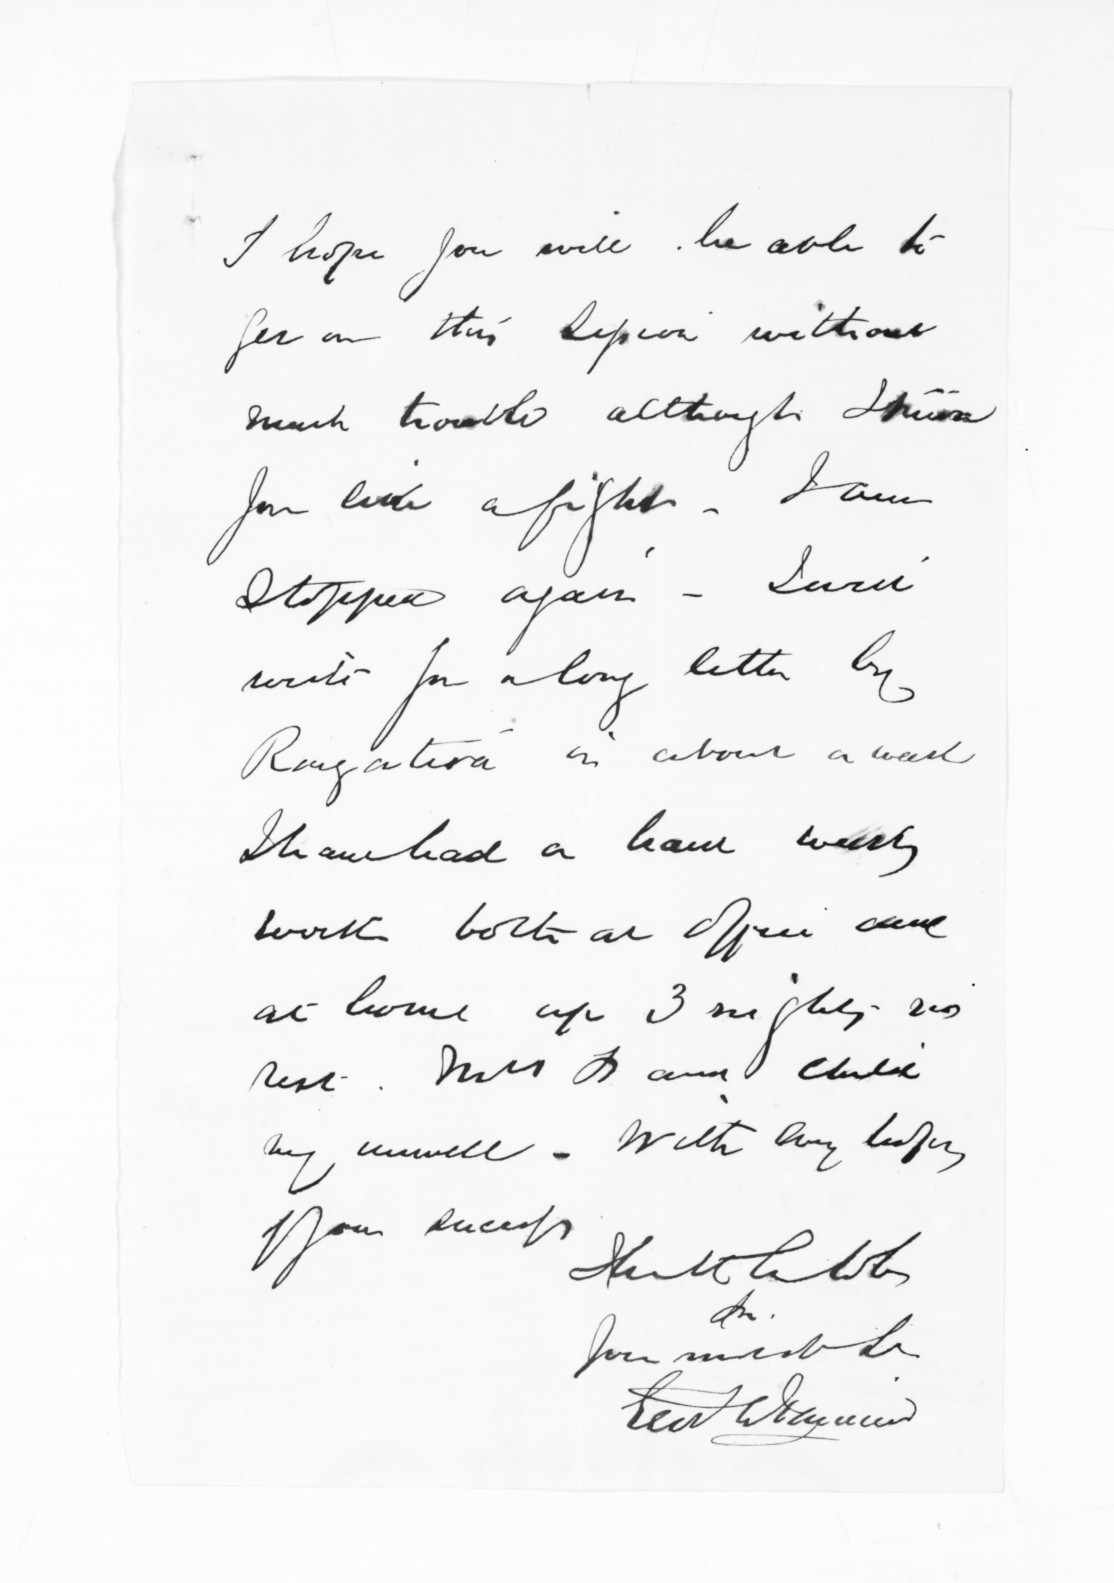 I hope you will be able to
get on this Session without
much trouble although I know
you like a fight - I am
Stopped again - I will
write you a long letter by
Rangatira in about a week
I have had a hard weeks
work both at Office and
at home up 3 nights no
rest. Mrs and child
very unwell - With every hope
of your success

Yours